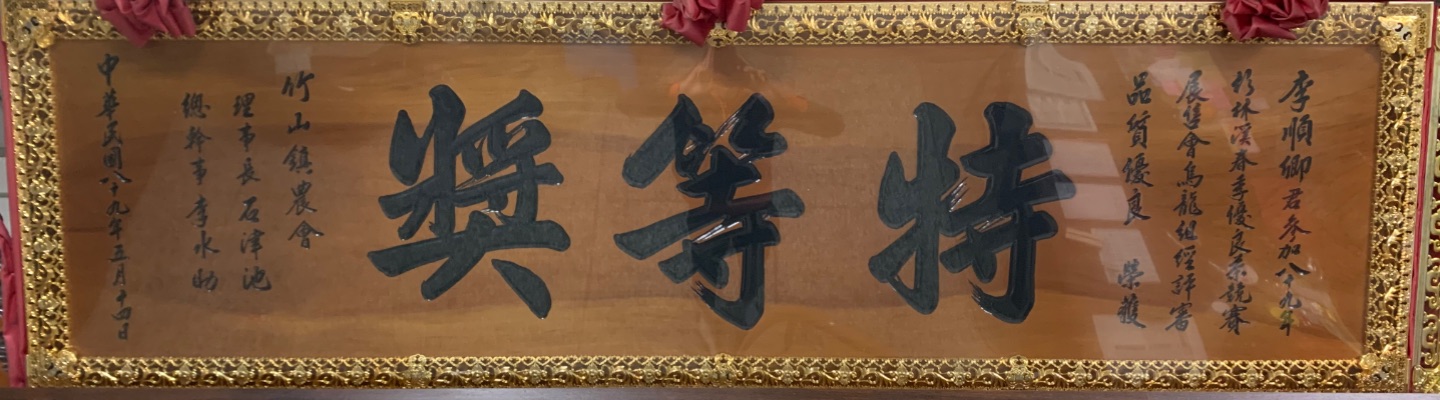 李順卿君参加八十九年
杉林溪春季優良茶競賽
展售會烏龍組經評審
品質優良 榮獲
特等獎
竹山鎮農會
理事長石津池
總幹事李水助
中華民國八十九年五月十四日